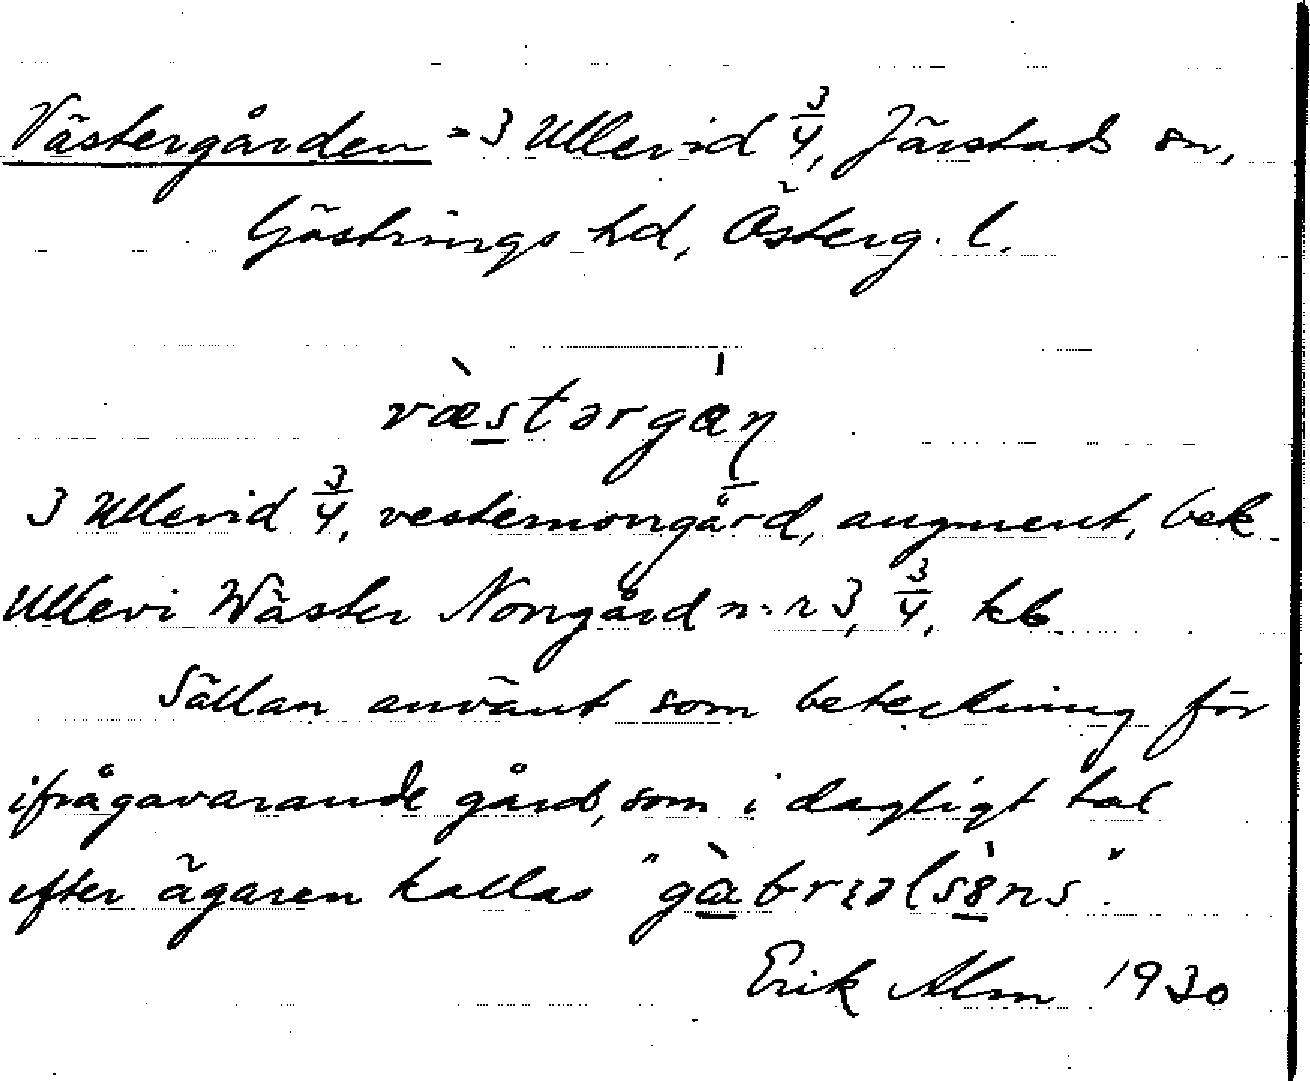 Västergården = 3 Ullevid 3/4, Järstads sn,
Göstrings hd, Österg. l.
væstərgan
3 Ullevid 3/4, vesternorrgård, augment, bek
Ullevi Wäster Norrgård n:r 3, 3/4, kb
Sällan använt som beteckning för
ifrågavarande gård, som i dagligt tal
efter ägaren kallas "gabrɪəlsɵns".
Erik Alm 1930